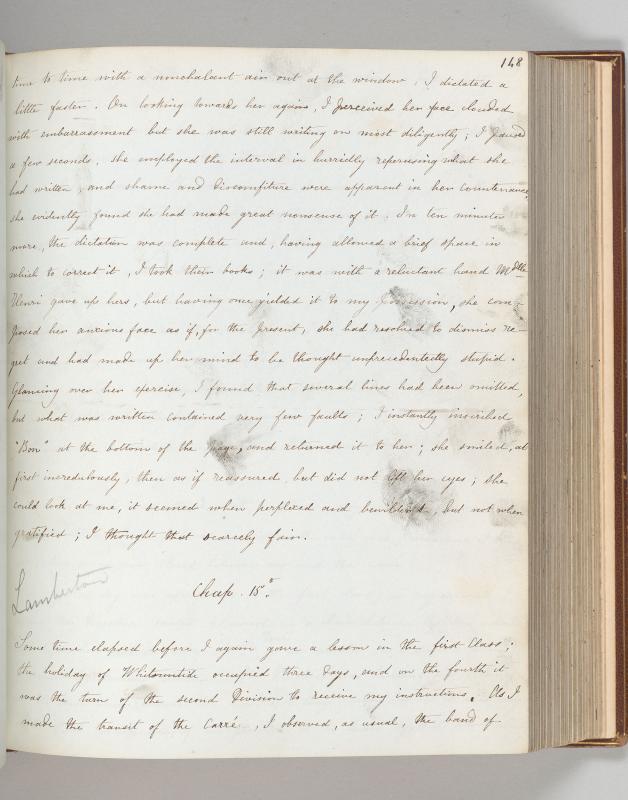 148
time to time with a nonchalant air out at the window, I dictated a
little faster. On looking towards her again, I perceived her face clouded
with embarrassment but she was still writing on most diligently; I paused
a few seconds, she employed the interval in hurriedly reperusing what she
had written, and shame and discomfiture were apparent in her countenance,
she evidently found she had made great nonsense of it. In ten minutes
more, the dictation was complete and, having allowed a brief space in
which to correct it, I took their books; it was with a reluctant hand Mdlle
Henri gave up hers, but having once yielded it to my possession, she com-
posed her anxious face as if, for the present, she had resolved to dismiss re-
gret and had made up her mind to be thought unprecedentedly stupid.
Glancing over her exercise, I found that several lines had been omitted,
but what was written contained very few faults; I instantly inscribed
"Bon" at the bottom of the page, and returned it to her; she smiled, at
first incredulously, then as if reassured, but did not lift her eyes; she
could look at me, it seemed when perplexed and bewildered, but not when
gratified; I thought that scarcely fair.
Lamberton
Chap. 15th.
Some time elapsed before I again gave a lesson in the first Class;
the holiday of Whitsuntide occupied three days, and on the fourth it
was the turn of the second Division to receive my instructions. As I
made the transit of the Carré, I observed, as usual, the band of